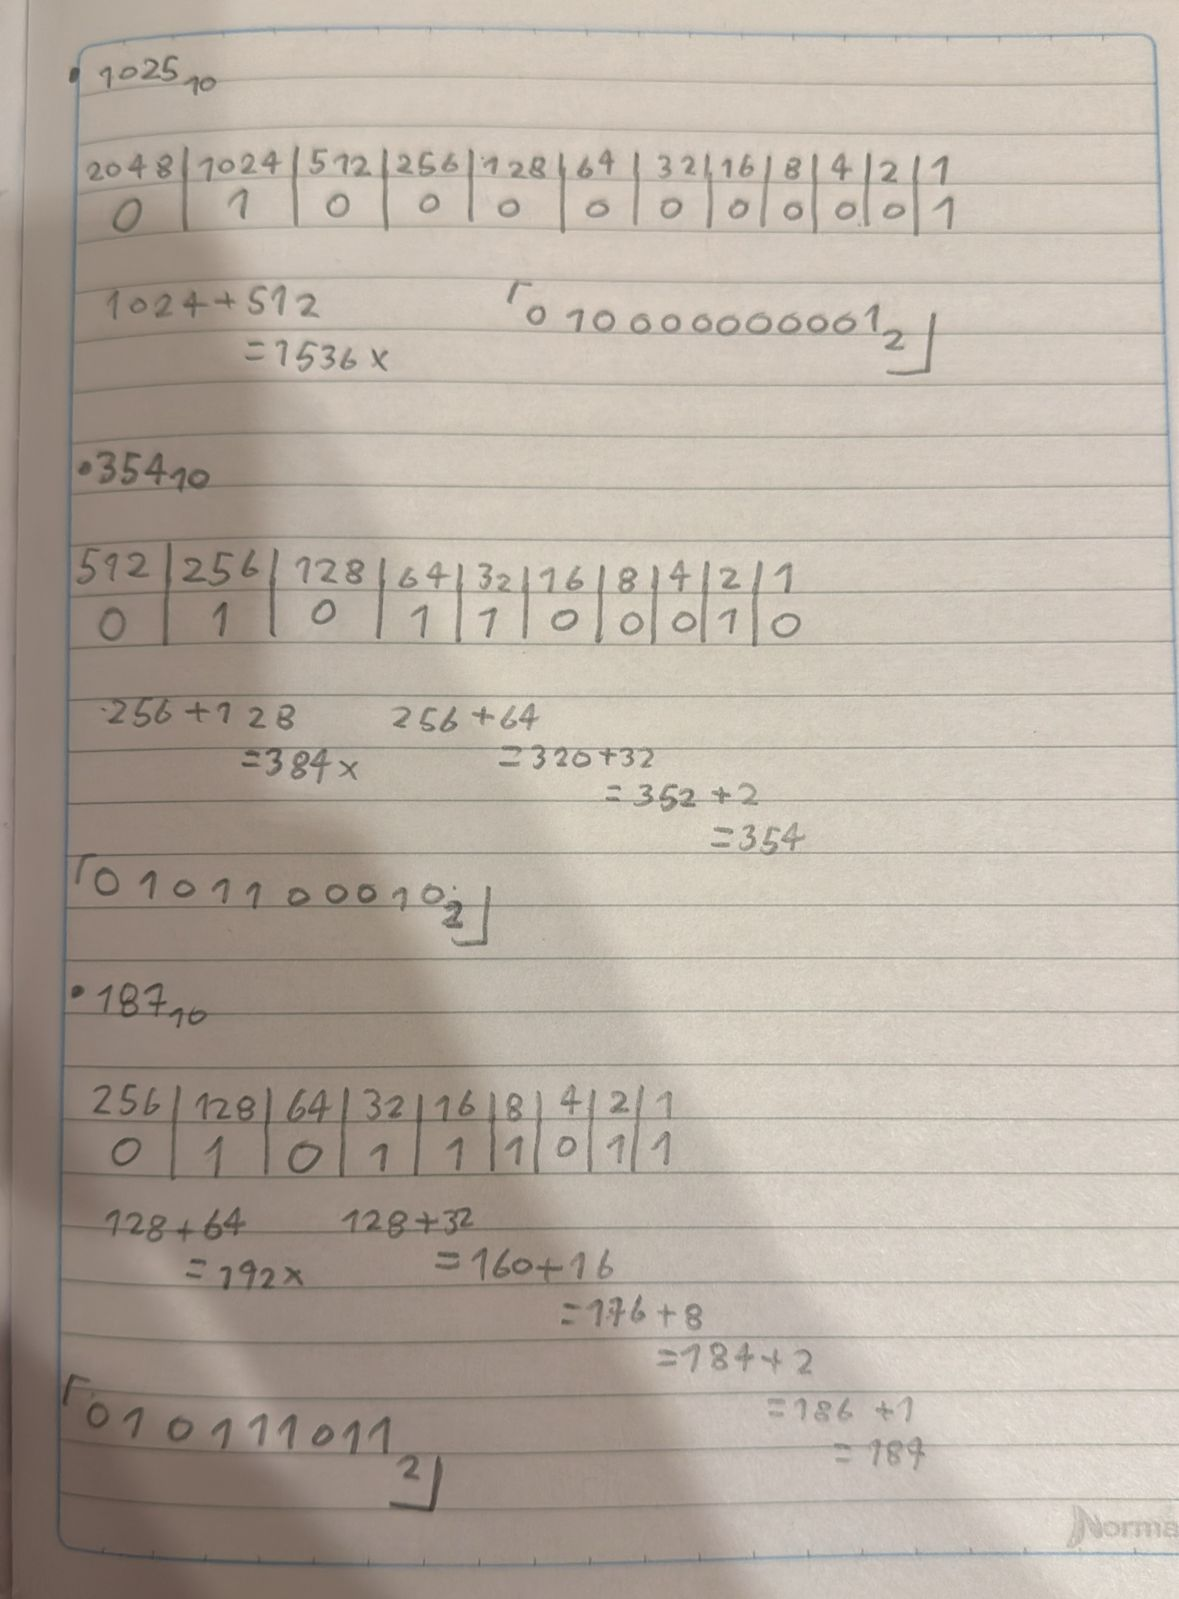 • 1025₁₀
2048 | 1024 | 512 | 256 | 128 | 64 | 32 | 16 | 8 | 4 | 2 | 1
0 | 1 | 0 | 0 | 0 | 0 | 0 | 0 | 0 | 0 | 0 | 1
1024+512
=1536 x
⌈010000000001₂⌋
• 354₁₀
512 | 256 | 128 | 64 | 32 | 16 | 8 | 4 | 2 | 1
0 | 1 | 0 | 1 | 1 | 0 | 0 | 0 | 1 | 0
256+128
=384 x
256+64
=320+32
=352+2
=354
⌈0101100010₂⌋
• 187₁₀
256 | 128 | 64 | 32 | 16 | 8 | 4 | 2 | 1
0 | 1 | 0 | 1 | 1 | 1 | 0 | 1 | 1
128+64
=192 x
128+32
=160+16
=176+8
=184+2
=186+1
=187
⌈010111011₂⌋
Norma